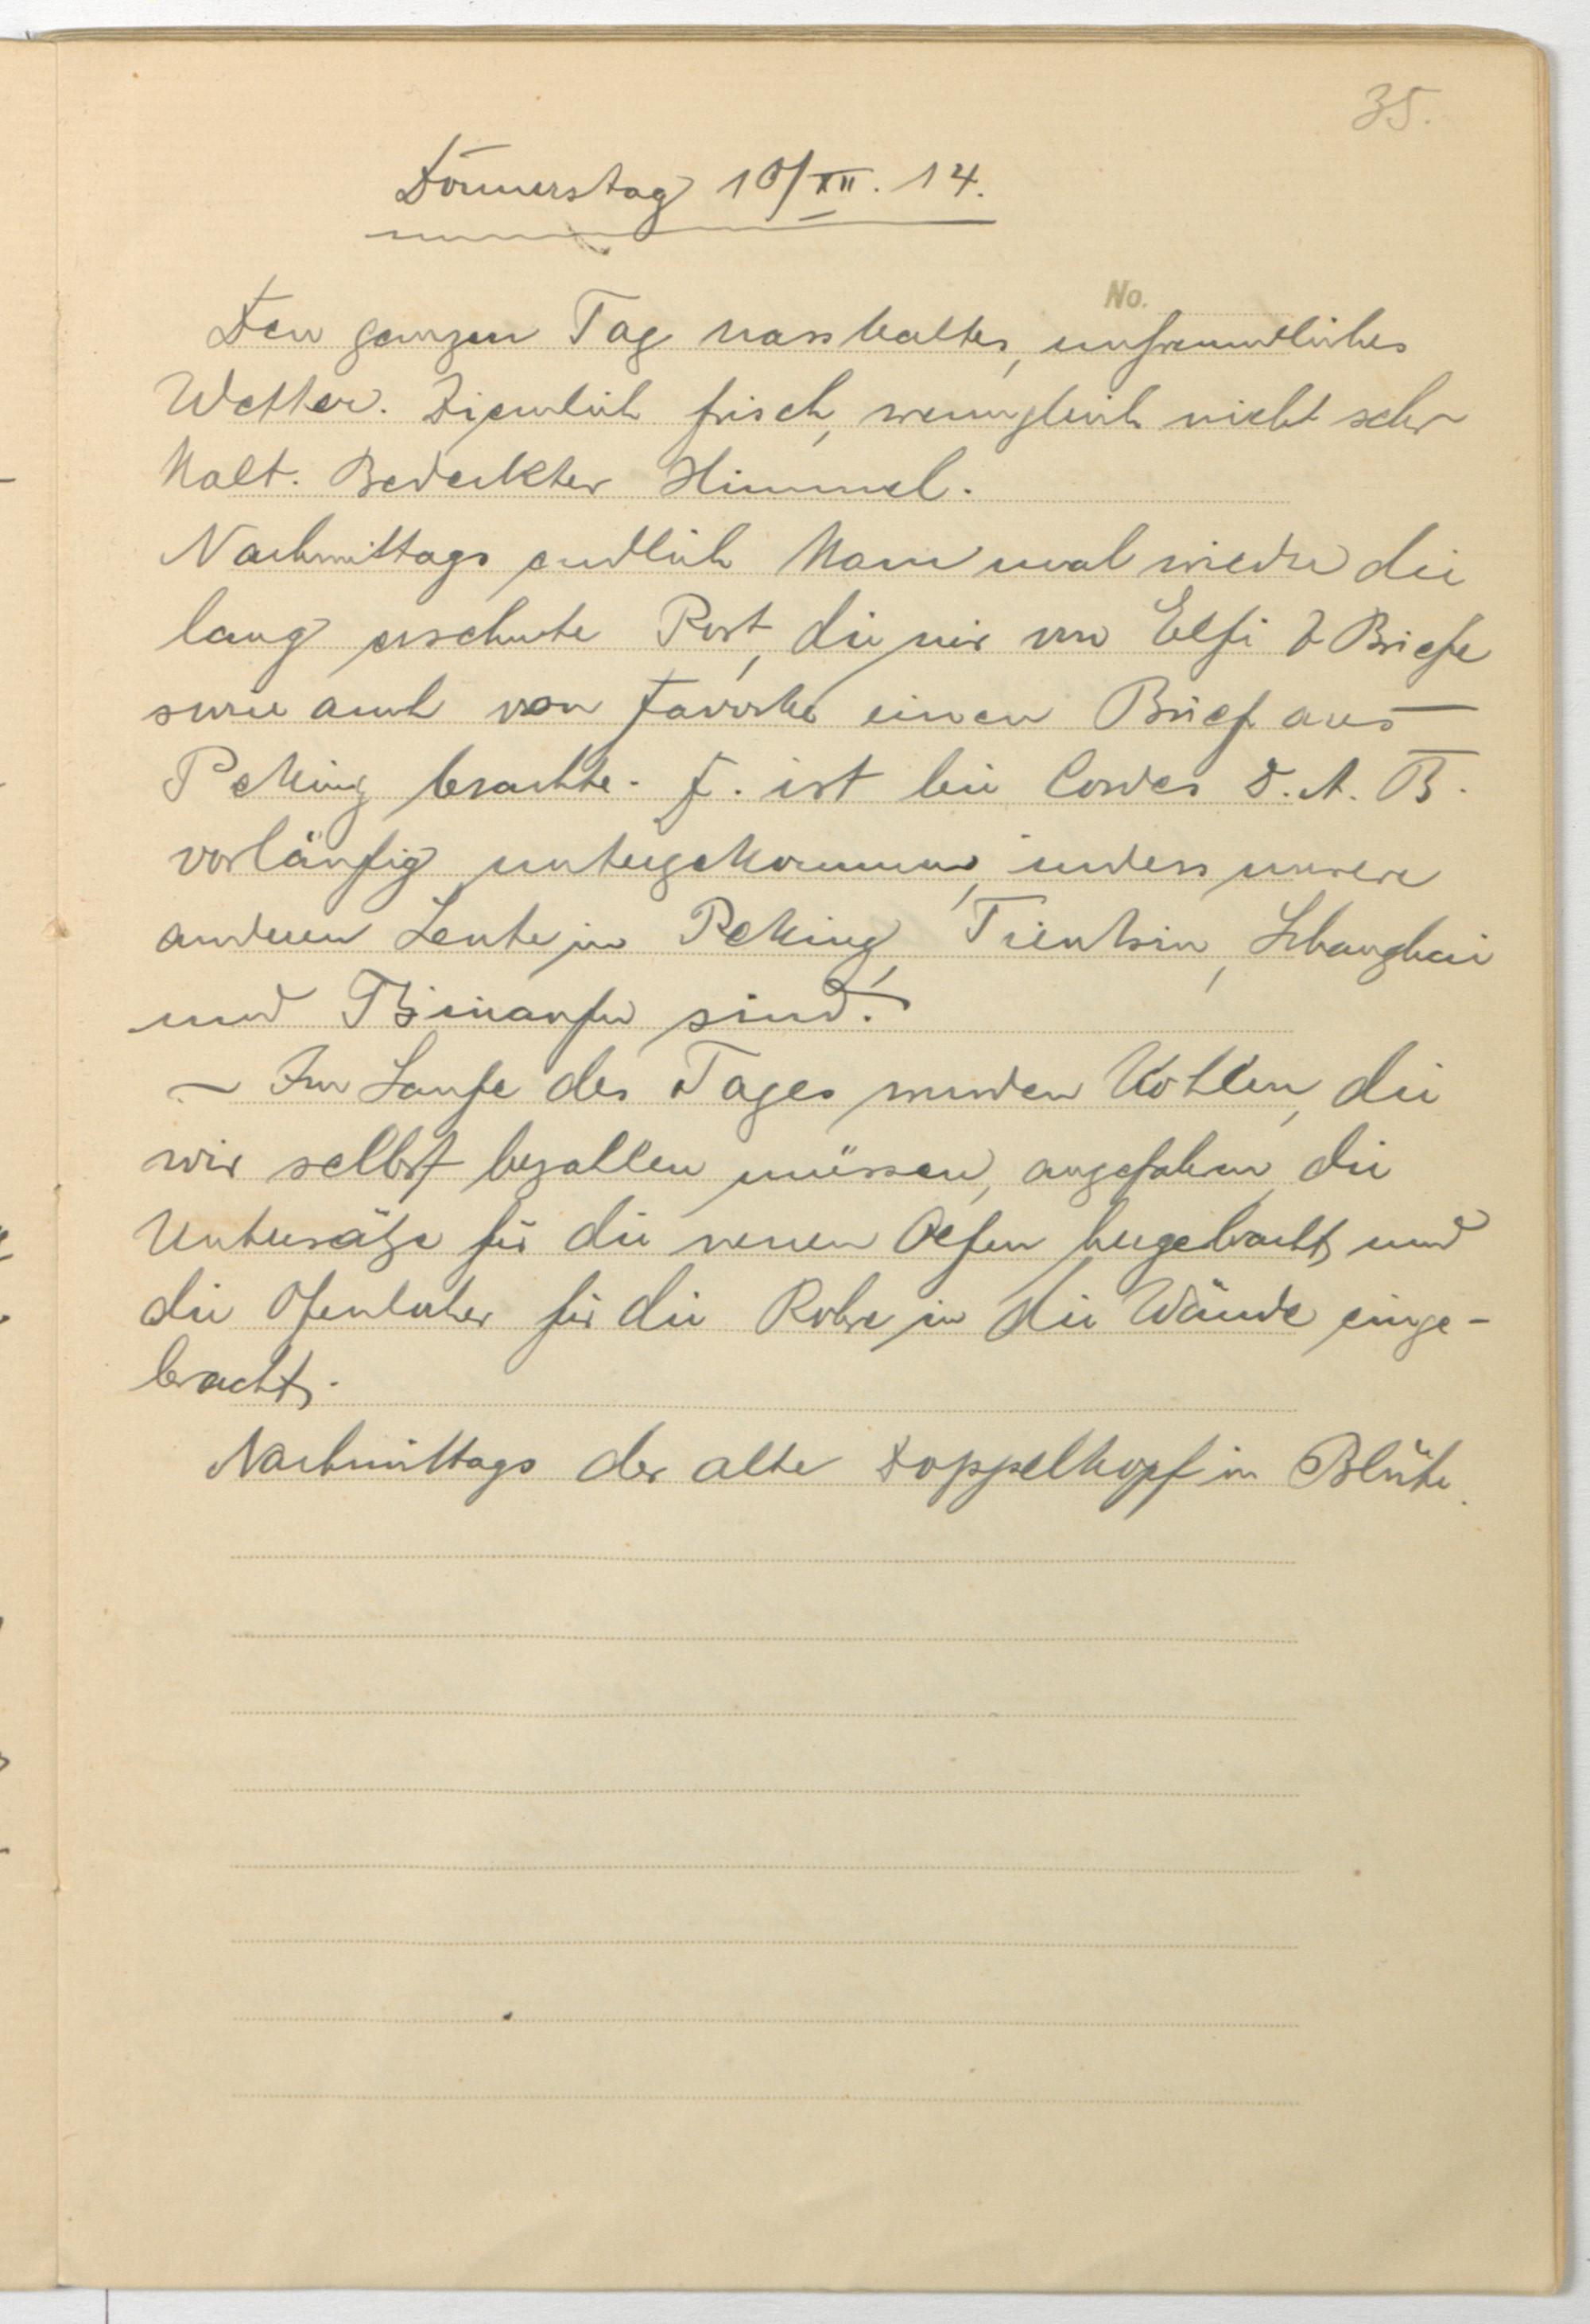 35.
Donnerstag 10/XII. 14.
No.
Den ganzen Tag nasskaltes, unfreundliches
Wetter. Ziemlich frisch, wenngleich nicht sehr
kalt. Bedeckter Himmel.
Nachmittags endlich kam mal wieder die
lang ersehnte Post, die mir von Elfi 2 Briefe
sowie auch von einen Brief aus
Peking brachte. F. ist bei Cordes D. A. B.
vorläufig untergekommen, indess unsere
anderen Leute in Peking, Tientsin, Schanghai
und Tsinanfu sind.
– Im Laufe des Tages wurden Kohlen, die
wir selbst bezahlen müssen, angefahren, die
Untersätze für die neuen Oefen hergebracht und
die Ofenlöcher für die Rohre in die Wände einge-
bracht.
Nachmittags der alte Doppelkopf in Blüte.